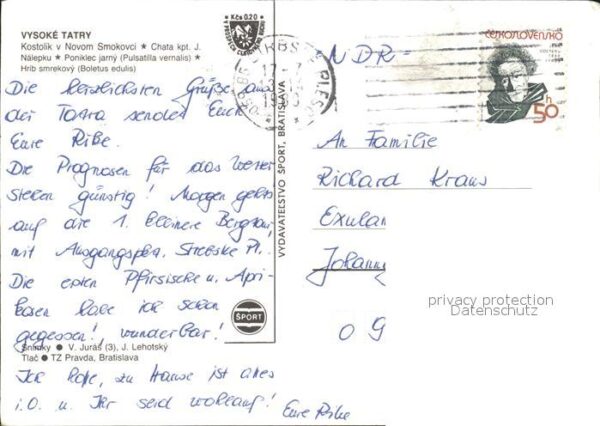 VYSOKÉ TATRY
Kostolík v Novom Smokovci ★ Chata kpt. J.
Nálepku ★ Poniklec jarný (Pulsatilla vernalis) ★
Hríb smrekový (Boletus edulis)
Die herzlichsten Grüße aus
der Tatra sendet Euch
Eure
Die Prognosen für das Wetter
stehen günstig! Morgen gehts
auf die 1. kleinere Bergtour,
mit Ausgangspkt. Strbske Pl.
Die ersten Pfirsische u. Apri-
kosen habe ich schon
gegessen!, wunderbar!
Snímky ● V. Juráš (3), J. Lehotský
Tlač ● TZ Pravda, Bratislava
Ich hoffe, zu Hause ist alles
i.O. u. Ihr seid wohlauf!
Eure
Kčs 0,20
VYDAVATEĽSTVO ŠPORT, BRATISLAVA
ŠPORT
ČESKOSLOVENSKO
50 h
- NDR -
An Familie
Richard Kraus
Exulan
Johann
09
privacy protection
Datenschutz